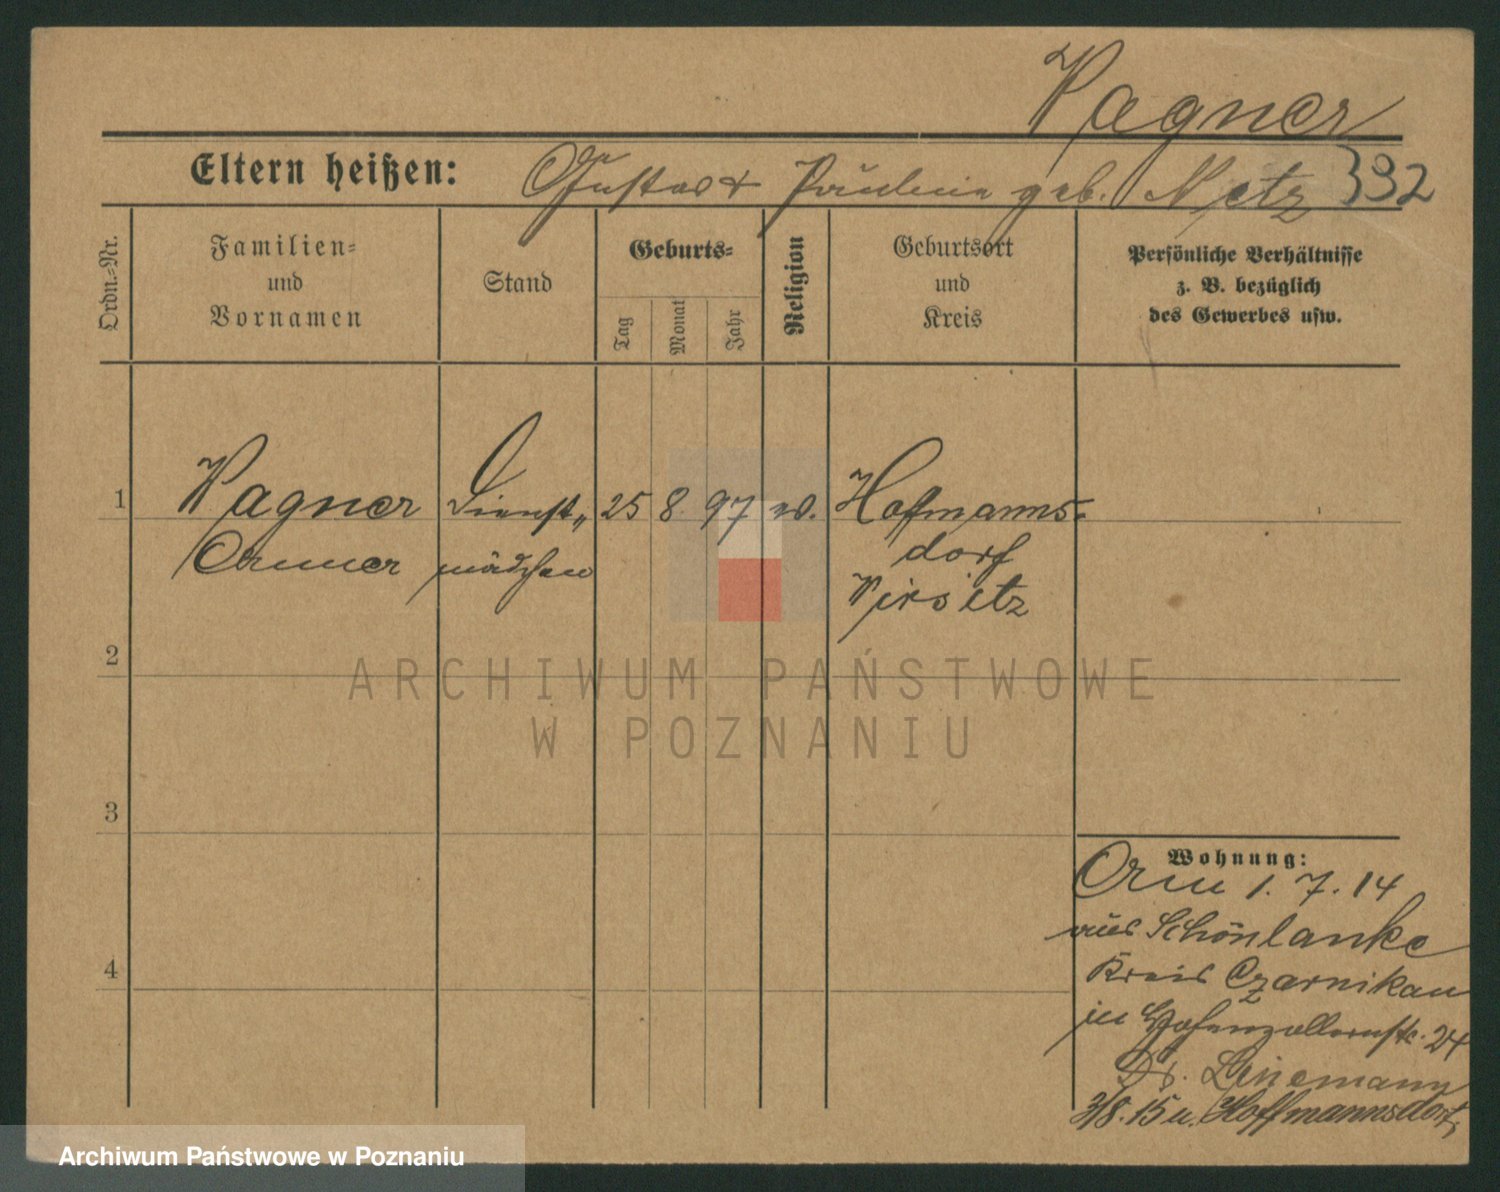 Wagner
Eltern heißen: Gustav & Pauline geb. Netz 392
Ordn.=Nr.
Familien=
und
Vornamen
Stand
Geburts=
Tag
Monat
Jahr
Religion
Geburtsort
und
Kreis
Persönliche Verhältnisse
z. B. bezüglich
des Gewerbes usw.
1 Wagner Dienst„ 25 8. 97 w. Hofmanns=
mädchen dorf
Wirsitz
2
3
4
Wohnung:
1. 7. 14
aus Schönlanke
Kreis Czarnikau
in Hohenzollernstr. 24
Dr. Leinemann
3/8. 15 n. Hoffmannsdorf
ARCHIWUM PAŃSTWOWE
W POZNANIU
Archiwum Państwowe w Poznaniu